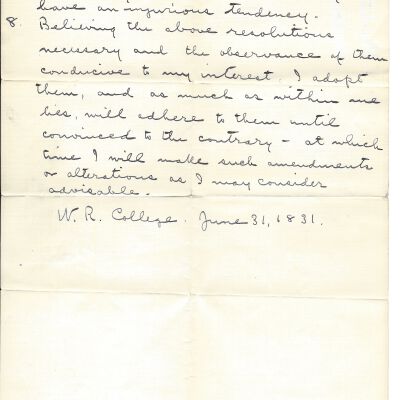 have an injurious tendency.
8. Believing the above resolutions
necessary and the observance of them
conducive to my interest, I adopt
them, and as much as within me
lies, will adhere to them until
convinced to the contrary - at which
time I will make such amendments
or alterations as I may consider
advisable.
W. R. College. June 31, 1831.